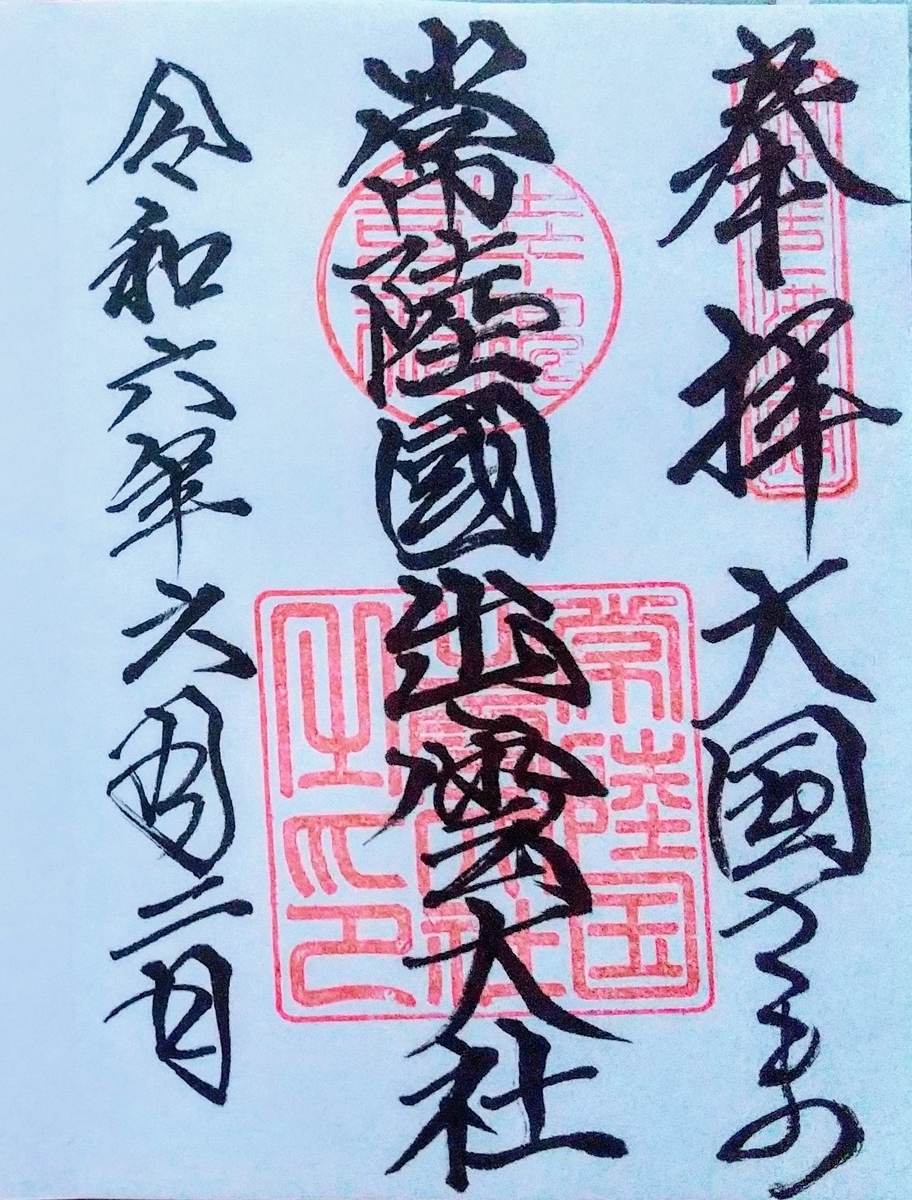 奉拝 大国さま
常陸國出雲大社
令和六年六月二日
常陸国
出雲大社
之印